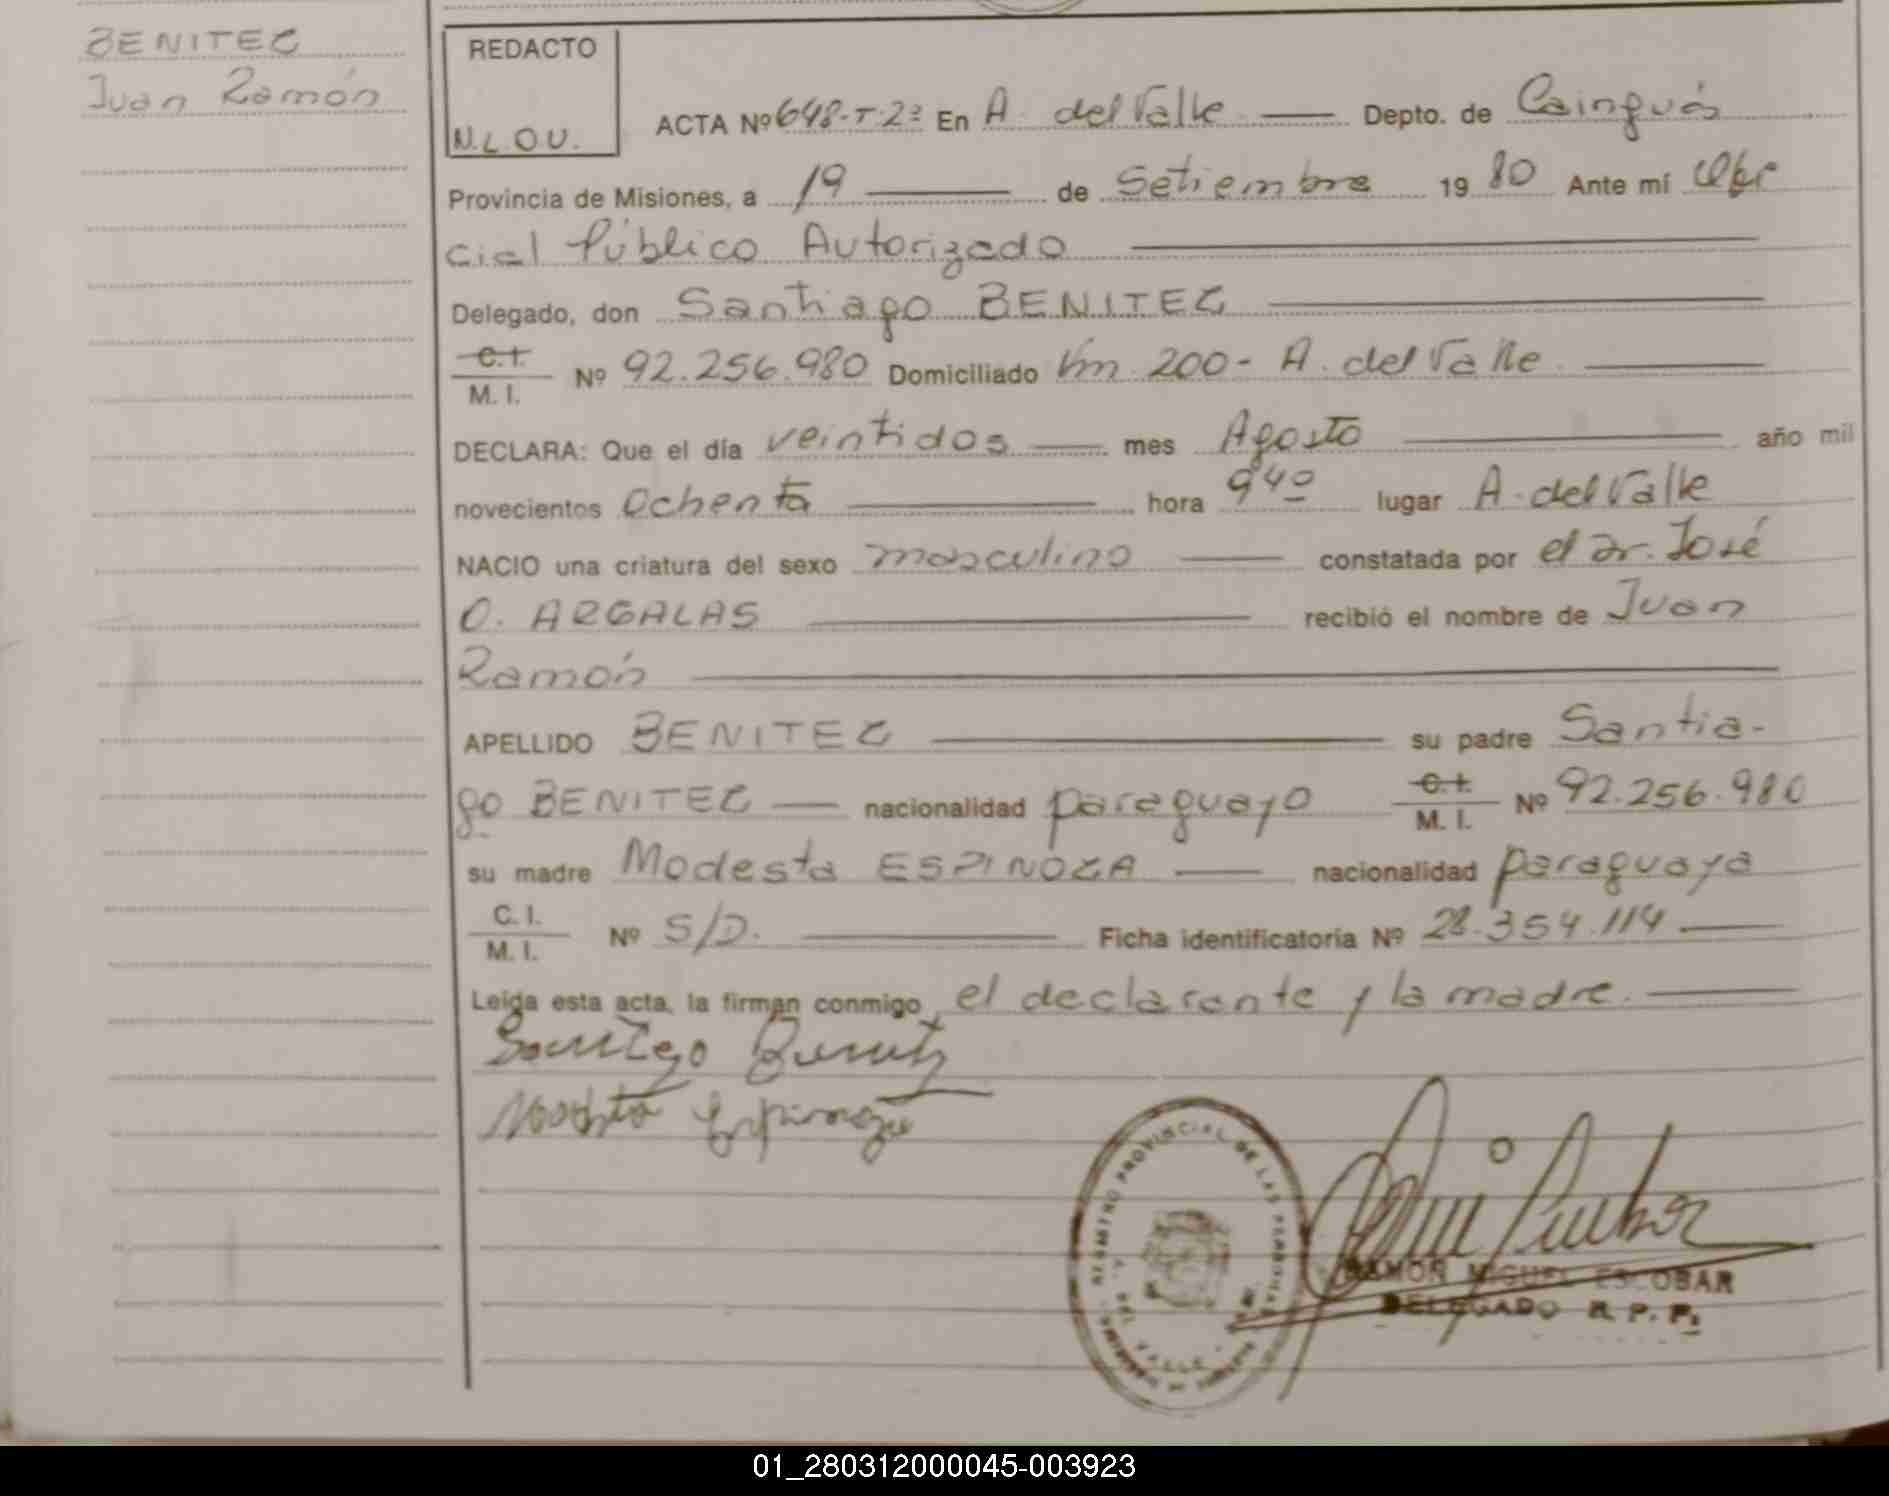 BENITEZ
Juan Ramón
REDACTO
N.L.O.U.
ACTA Nº 648-T-2º En A. del Valle Depto. de Cainguás
Provincia de Misiones, a 19 de Setiembre 19 80 Ante mí
cial Público Autorizado
Delegado, don Santiago BENITEZ
C.I.
M. I. Nº 92.256.980 Domiciliado Km 200 - A. del Valle
DECLARA: Que el día veintidos mes Agosto año mil
novecientos ochenta hora 9 40 lugar A. del Valle
NACIO una criatura del sexo masculino constatada por el Dr. José
O. ARGALAS recibió el nombre de Juan
Ramón
APELLIDO BENITEZ su padre Santia-
go BENITEZ nacionalidad paraguayo C.I. M. I. Nº 92.256.980
su madre Modesta ESPINOZA nacionalidad paraguaya
C. I.
M. I. Nº S/D. Ficha identificatoria Nº 28.354.114
Leída esta acta, la firman conmigo, el declarante y la madre.
Santiago Benitez
Modesta Espinoza
REGISTRO PROVINCIAL DE LAS PERSONAS
A. DEL VALLE
RAMON MIGUEL ESCOBAR
DELEGADO R. P. P.
01_280312000045-003923